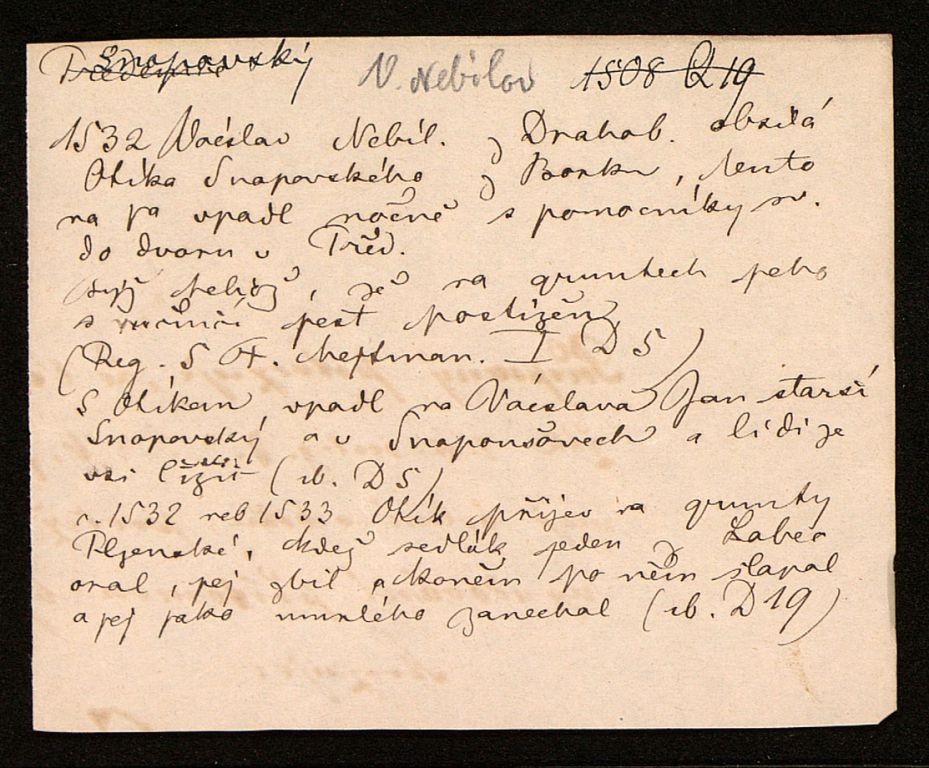 Snopovský V. Nebílov 1508 Q 19
1532 Vácslav Nebíl. z Drahob. obsílá
Otíka Snopovského z Borku, tento
na něj vpadl nočně s pomocníky sv.
do dvoru v Třed.
též, že na gruntech jeho
s ručnicí jest postižen
(Reg. S H. Hejtman. I D 5)
S Otíkem vpadl na Vácslava Jan starší
Snopovský a v Snopoušovech a lidi ze
vsi (ib. D 5)
r. 1532 neb 1533 Otík přijev na grunty
Plzenské, kdež sedlák jeden z Labce
oral, jej zbil a koněm po něm šlapal
a jej jako mrtvého zanechal (ib. D 19)